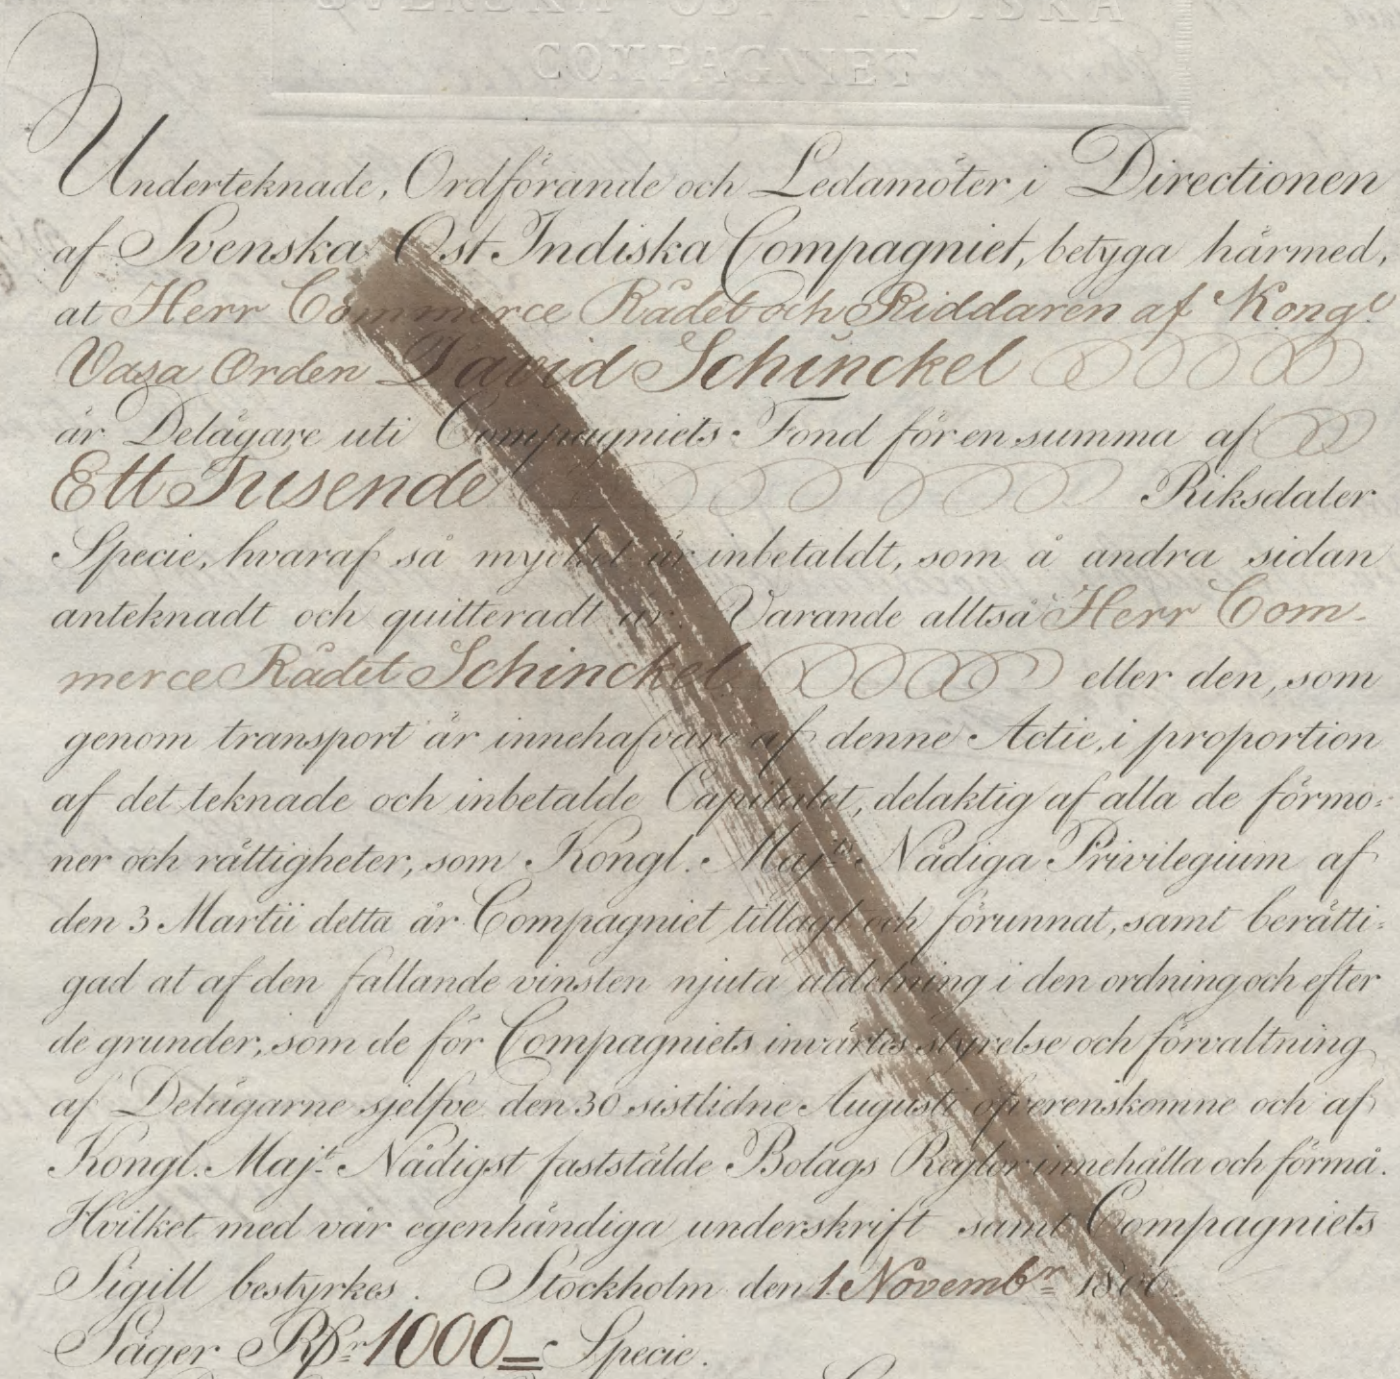 SVENSKA OST INDISKA
COMPAGNIET
Underteknade, Ordförande och Ledamöter i Directionen
af Svenska Ost Indiska Compagniet, betyga härmed,
at Herr Commerce Rådet och Riddaren af Kongl.
Vasa Orden David Schinckel
är Delägare uti Compagniets Fond för en summa af
Ett Tusende Riksdaler
Specie, hvaraf så myckit är inbetaldt, som å andra sidan
anteknadt och quitteradt är. Varande alltså Herr Com-
merce Rådet Schinckel eller den, som
genom transport är innehafvare af denne Actie, i proportion
af det teknade och inbetalde Capitalet, delaktig af alla de förmo-
ner och rättigheter, som Kongl. Majts Nådiga Privilegium af
den 3 Martii detta år Compagniet tillagt och förunnat, samt berätti-
gad at af den fallande vinsten njuta utdelning i den ordning och efter
de grunder, som de för Compagniets invärtes styrelse och förvaltning
af Delägarne sjelfve den 30 sistlidne Augusti öfverenskomne och af
Kongl. Majt Nådigst faststälde Bolags Reglor innehålla och förmå.
Hvilket med vår egenhändiga underskrift samt Compagniets
Sigill bestyrkes. Stockholm den 1 Novembr 1806
Säger Rdr 1000 Specie.